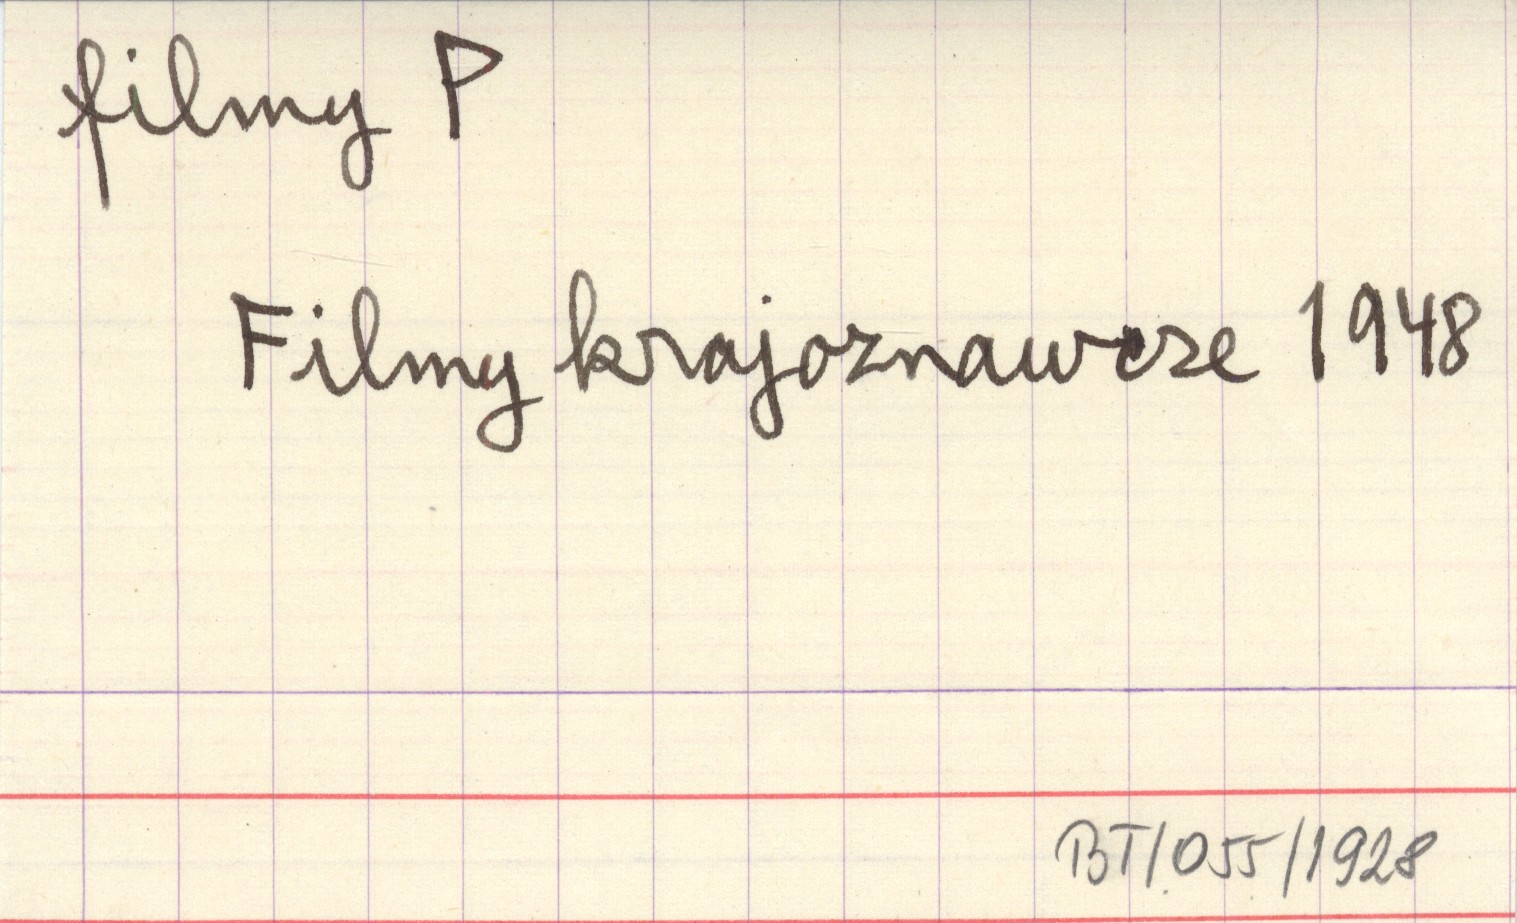 filmy P
Filmy krajoznawcze 1948
BT/055/1928